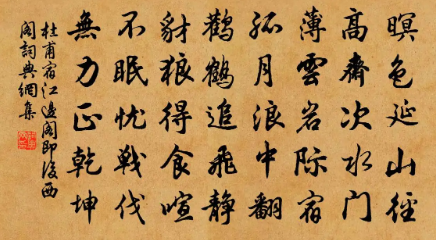 暝色延山徑
高齋次水門
薄雲岩際宿
孤月浪中翻
鸛鶴追飛靜
豺狼得食喧
不眠忧戰伐
無力正乾坤
杜甫宿江邊閣即後西
閣詞典網集